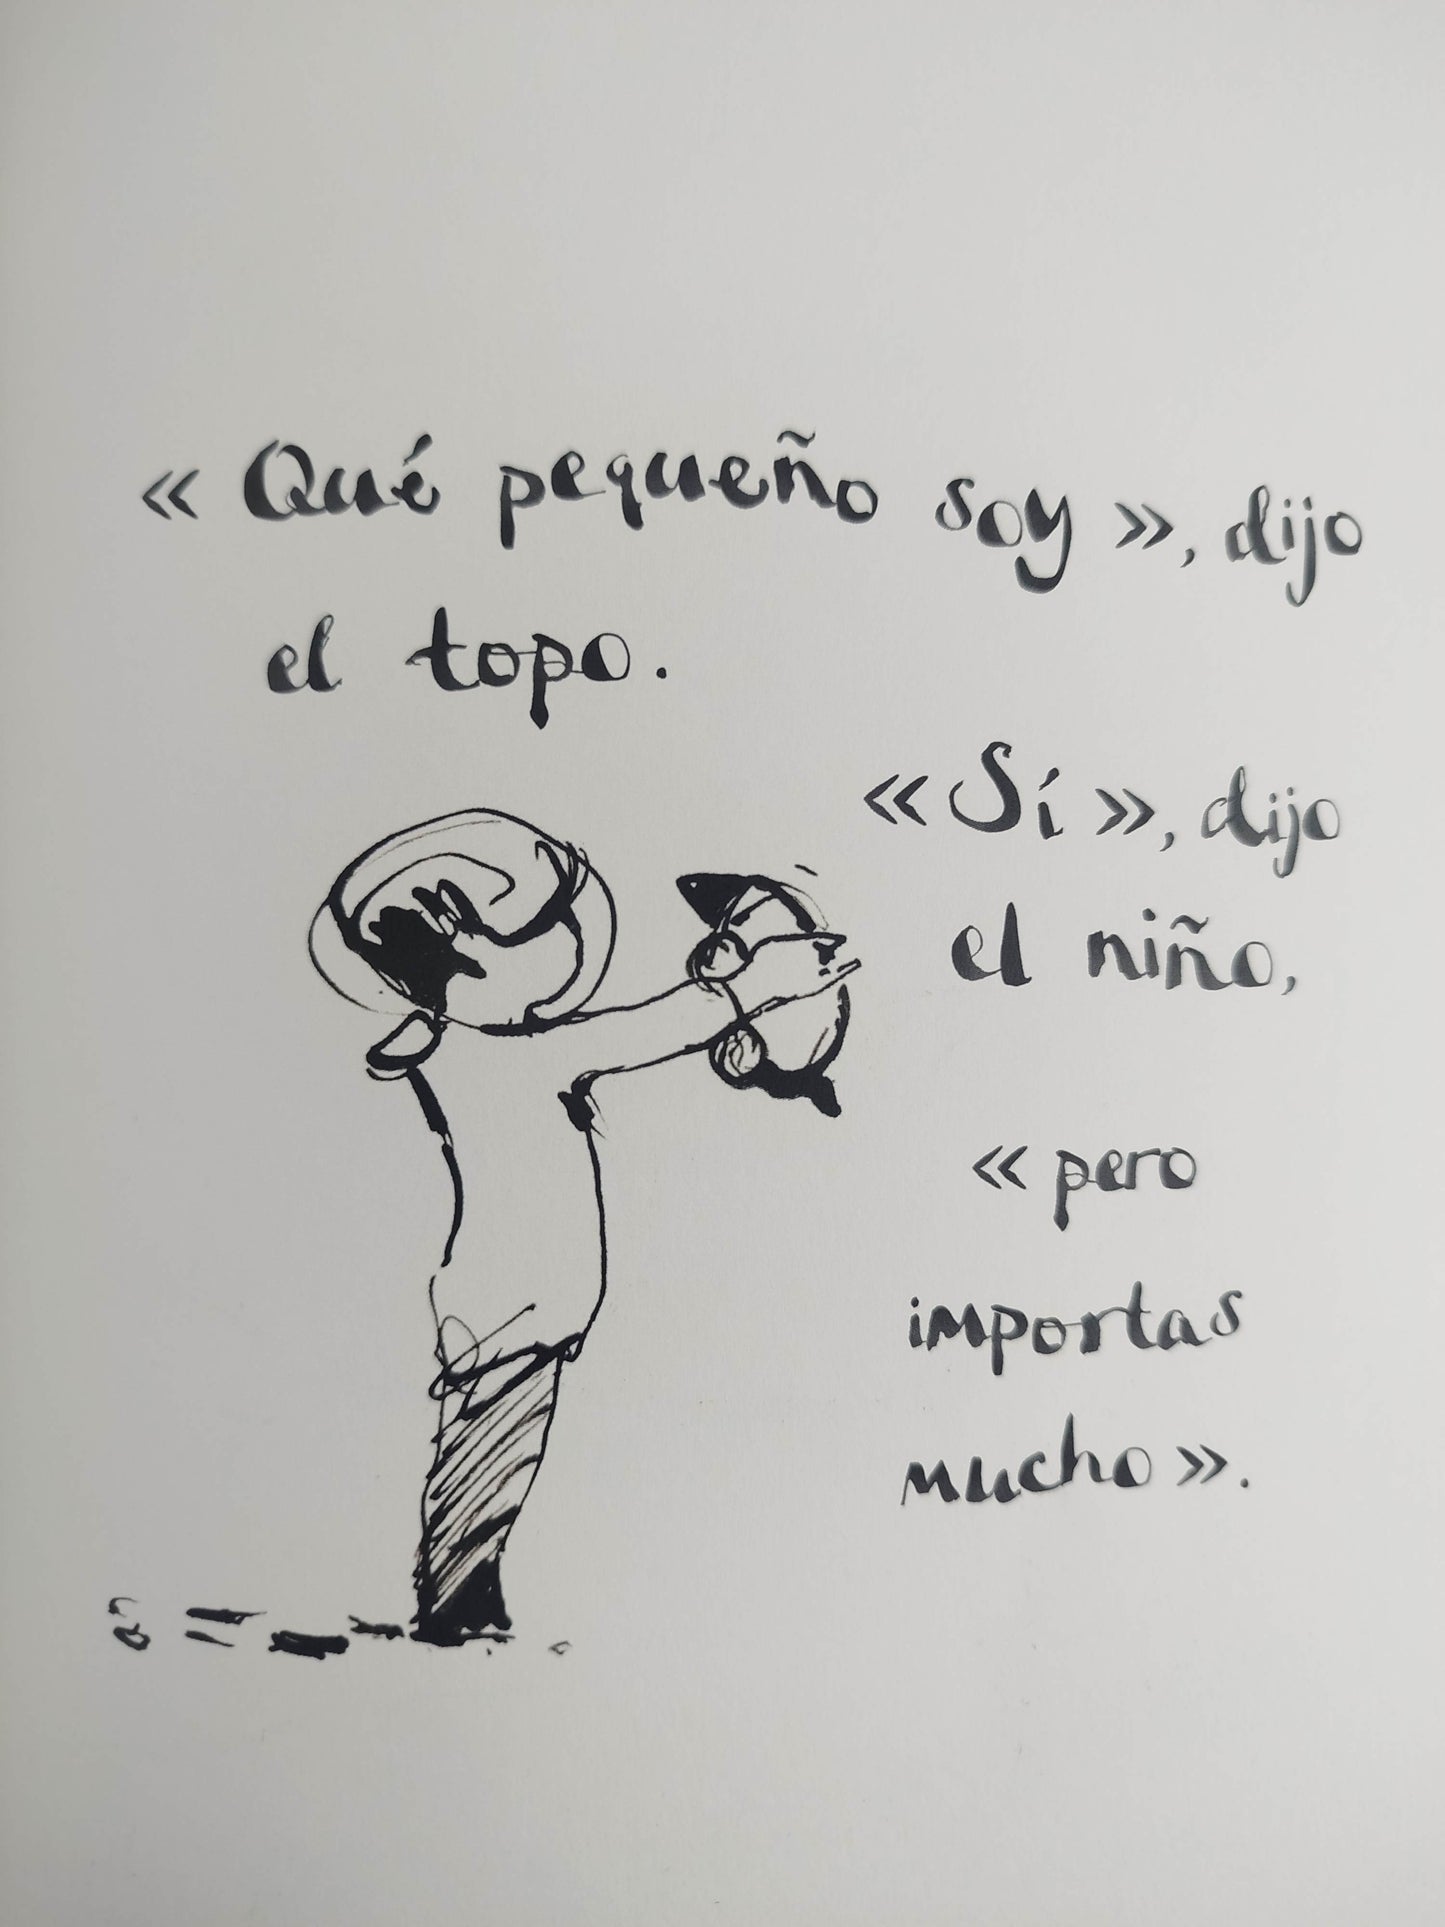 « Qué pequeño soy », dijo
el topo.
« Sí », dijo
el niño,
« pero
importas
mucho ».